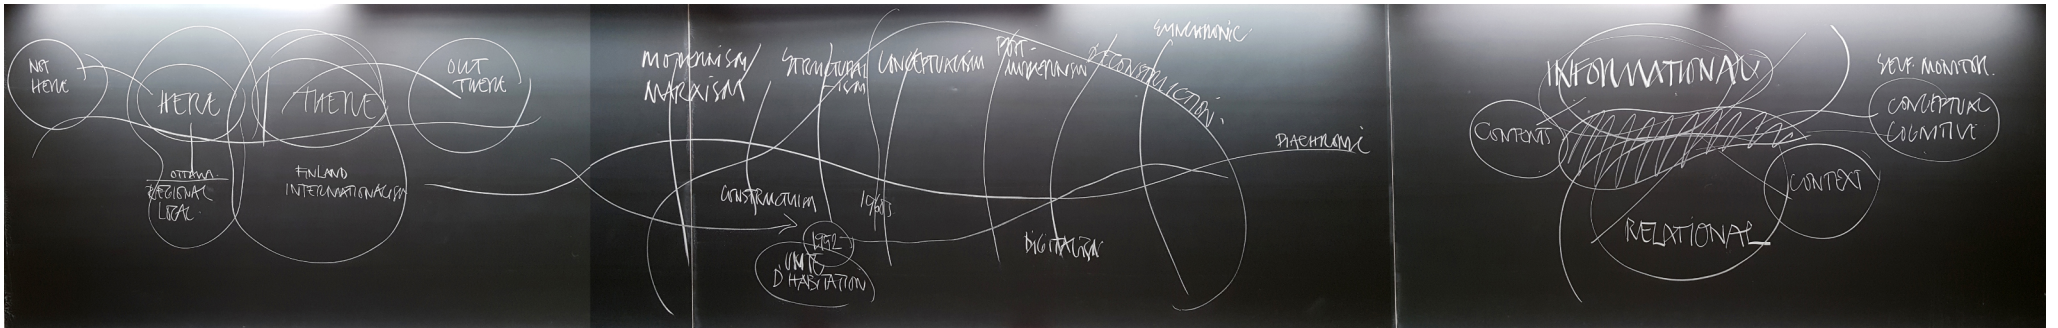 NOT
HERE
HERE
THERE
OUT
THERE
OTTAWA
REGIONAL
LOCAL
FINLAND
INTERNATIONALISM
MODERNISM/
MARXISM
STRUCTURAL
ISM
CONCEPTUALISM
POST-
MODERNISM
DECONSTRUCTION
SYNCHRONIC
DIACHRONIC
CONSTRUCTIVISM
1960s
1952
UNITE
D'HABITATION
INFORMATIONAL
CONTENTS
SELF-MONITOR.
CONCEPTUAL
COGNITIVE
CONTEXT
RELATIONAL